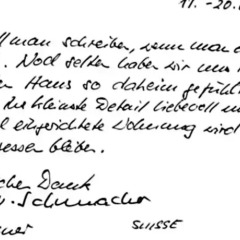 11. - 20.
ll man schreiben, wenn man
. Noch selten haben wir uns
en Haus so daheim gefühl
das kleinste Detail liebevoll
l eingerichtete Wohnung wird
essen bleiben.
cher Dank
Schumacher
SUISSE